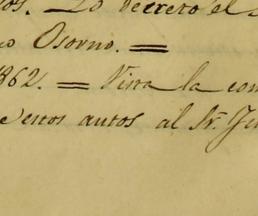 os. Lo decreto el
o Osorno. =
1862. = Vista la com
de estos autos al Sr. Ju